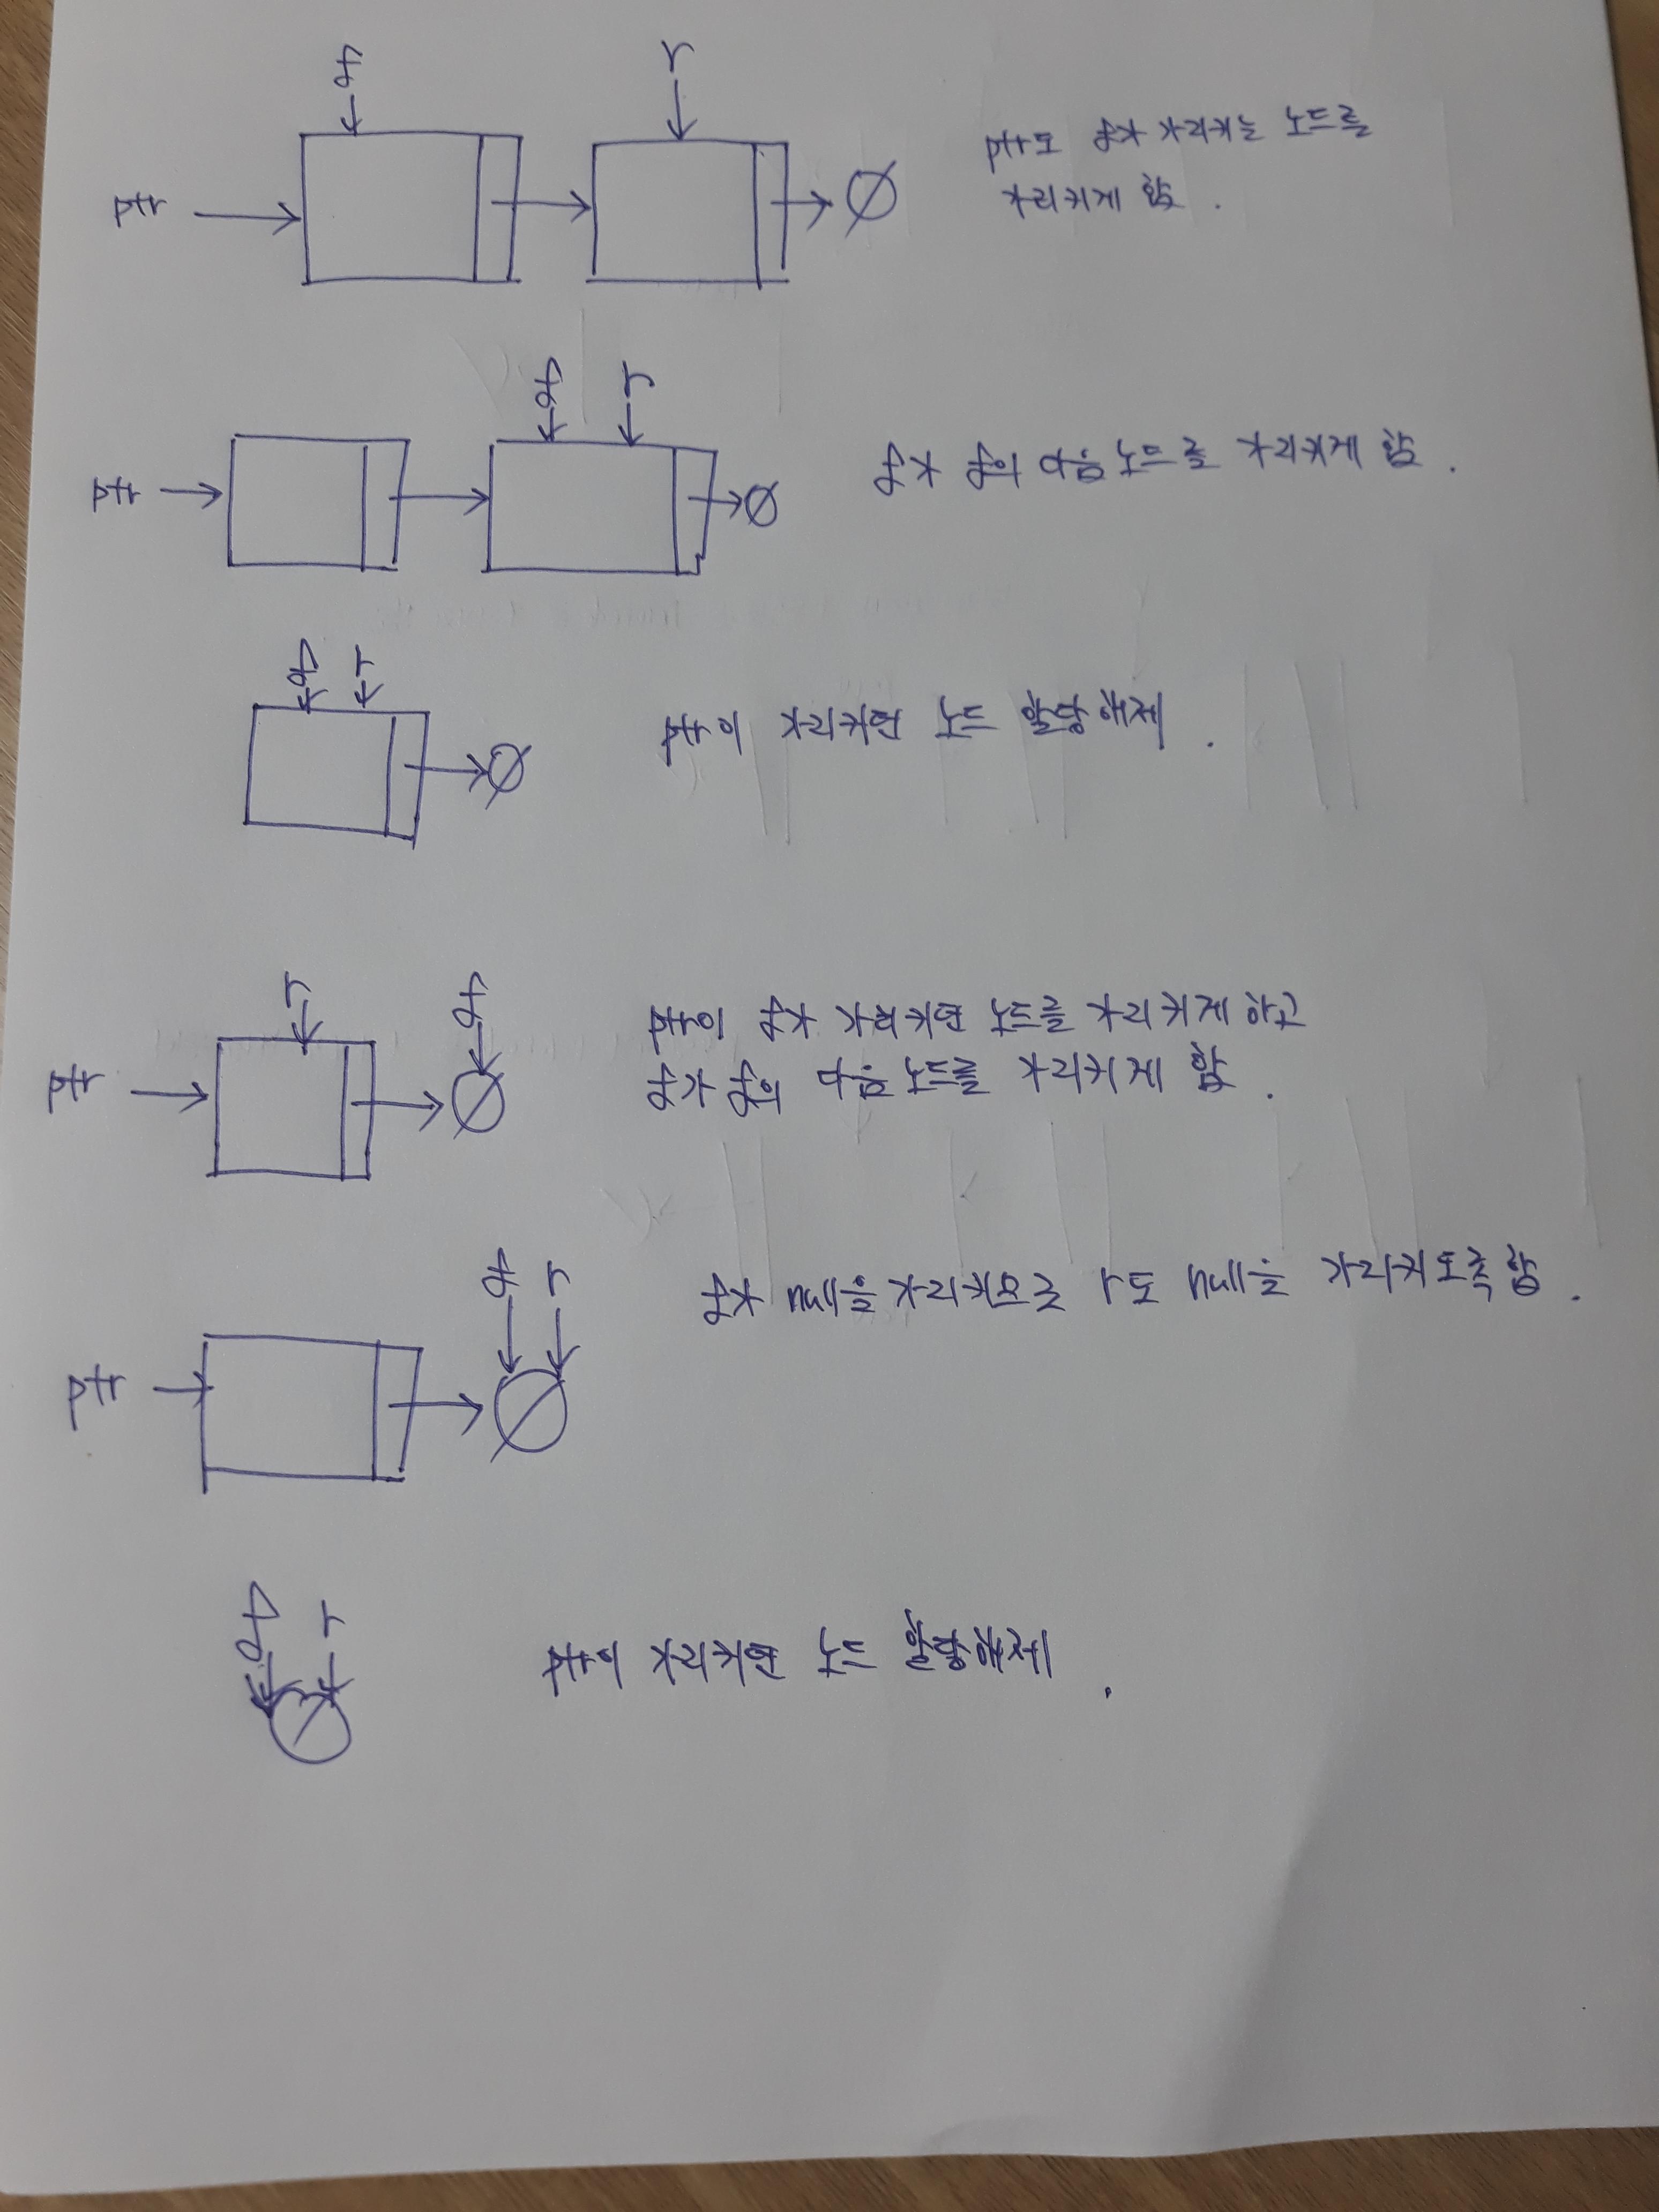 f
r
ptr
ptr도 f가 가리키는 노드를
가리키게 함.
f
r
ptr
f가 f의 다음 노드를 가리키게 함.
f
r
ptr이 가리키던 노드 할당해제.
r
f
ptr
ptr이 f가 가리키던 노드를 가리키게 하고
f가 f의 다음 노드를 가리키게 함.
f
r
ptr
f가 null을 가리키므로 r도 null을 가리키도록 함.
f
r
ptr이 가리키던 노드 할당해제.